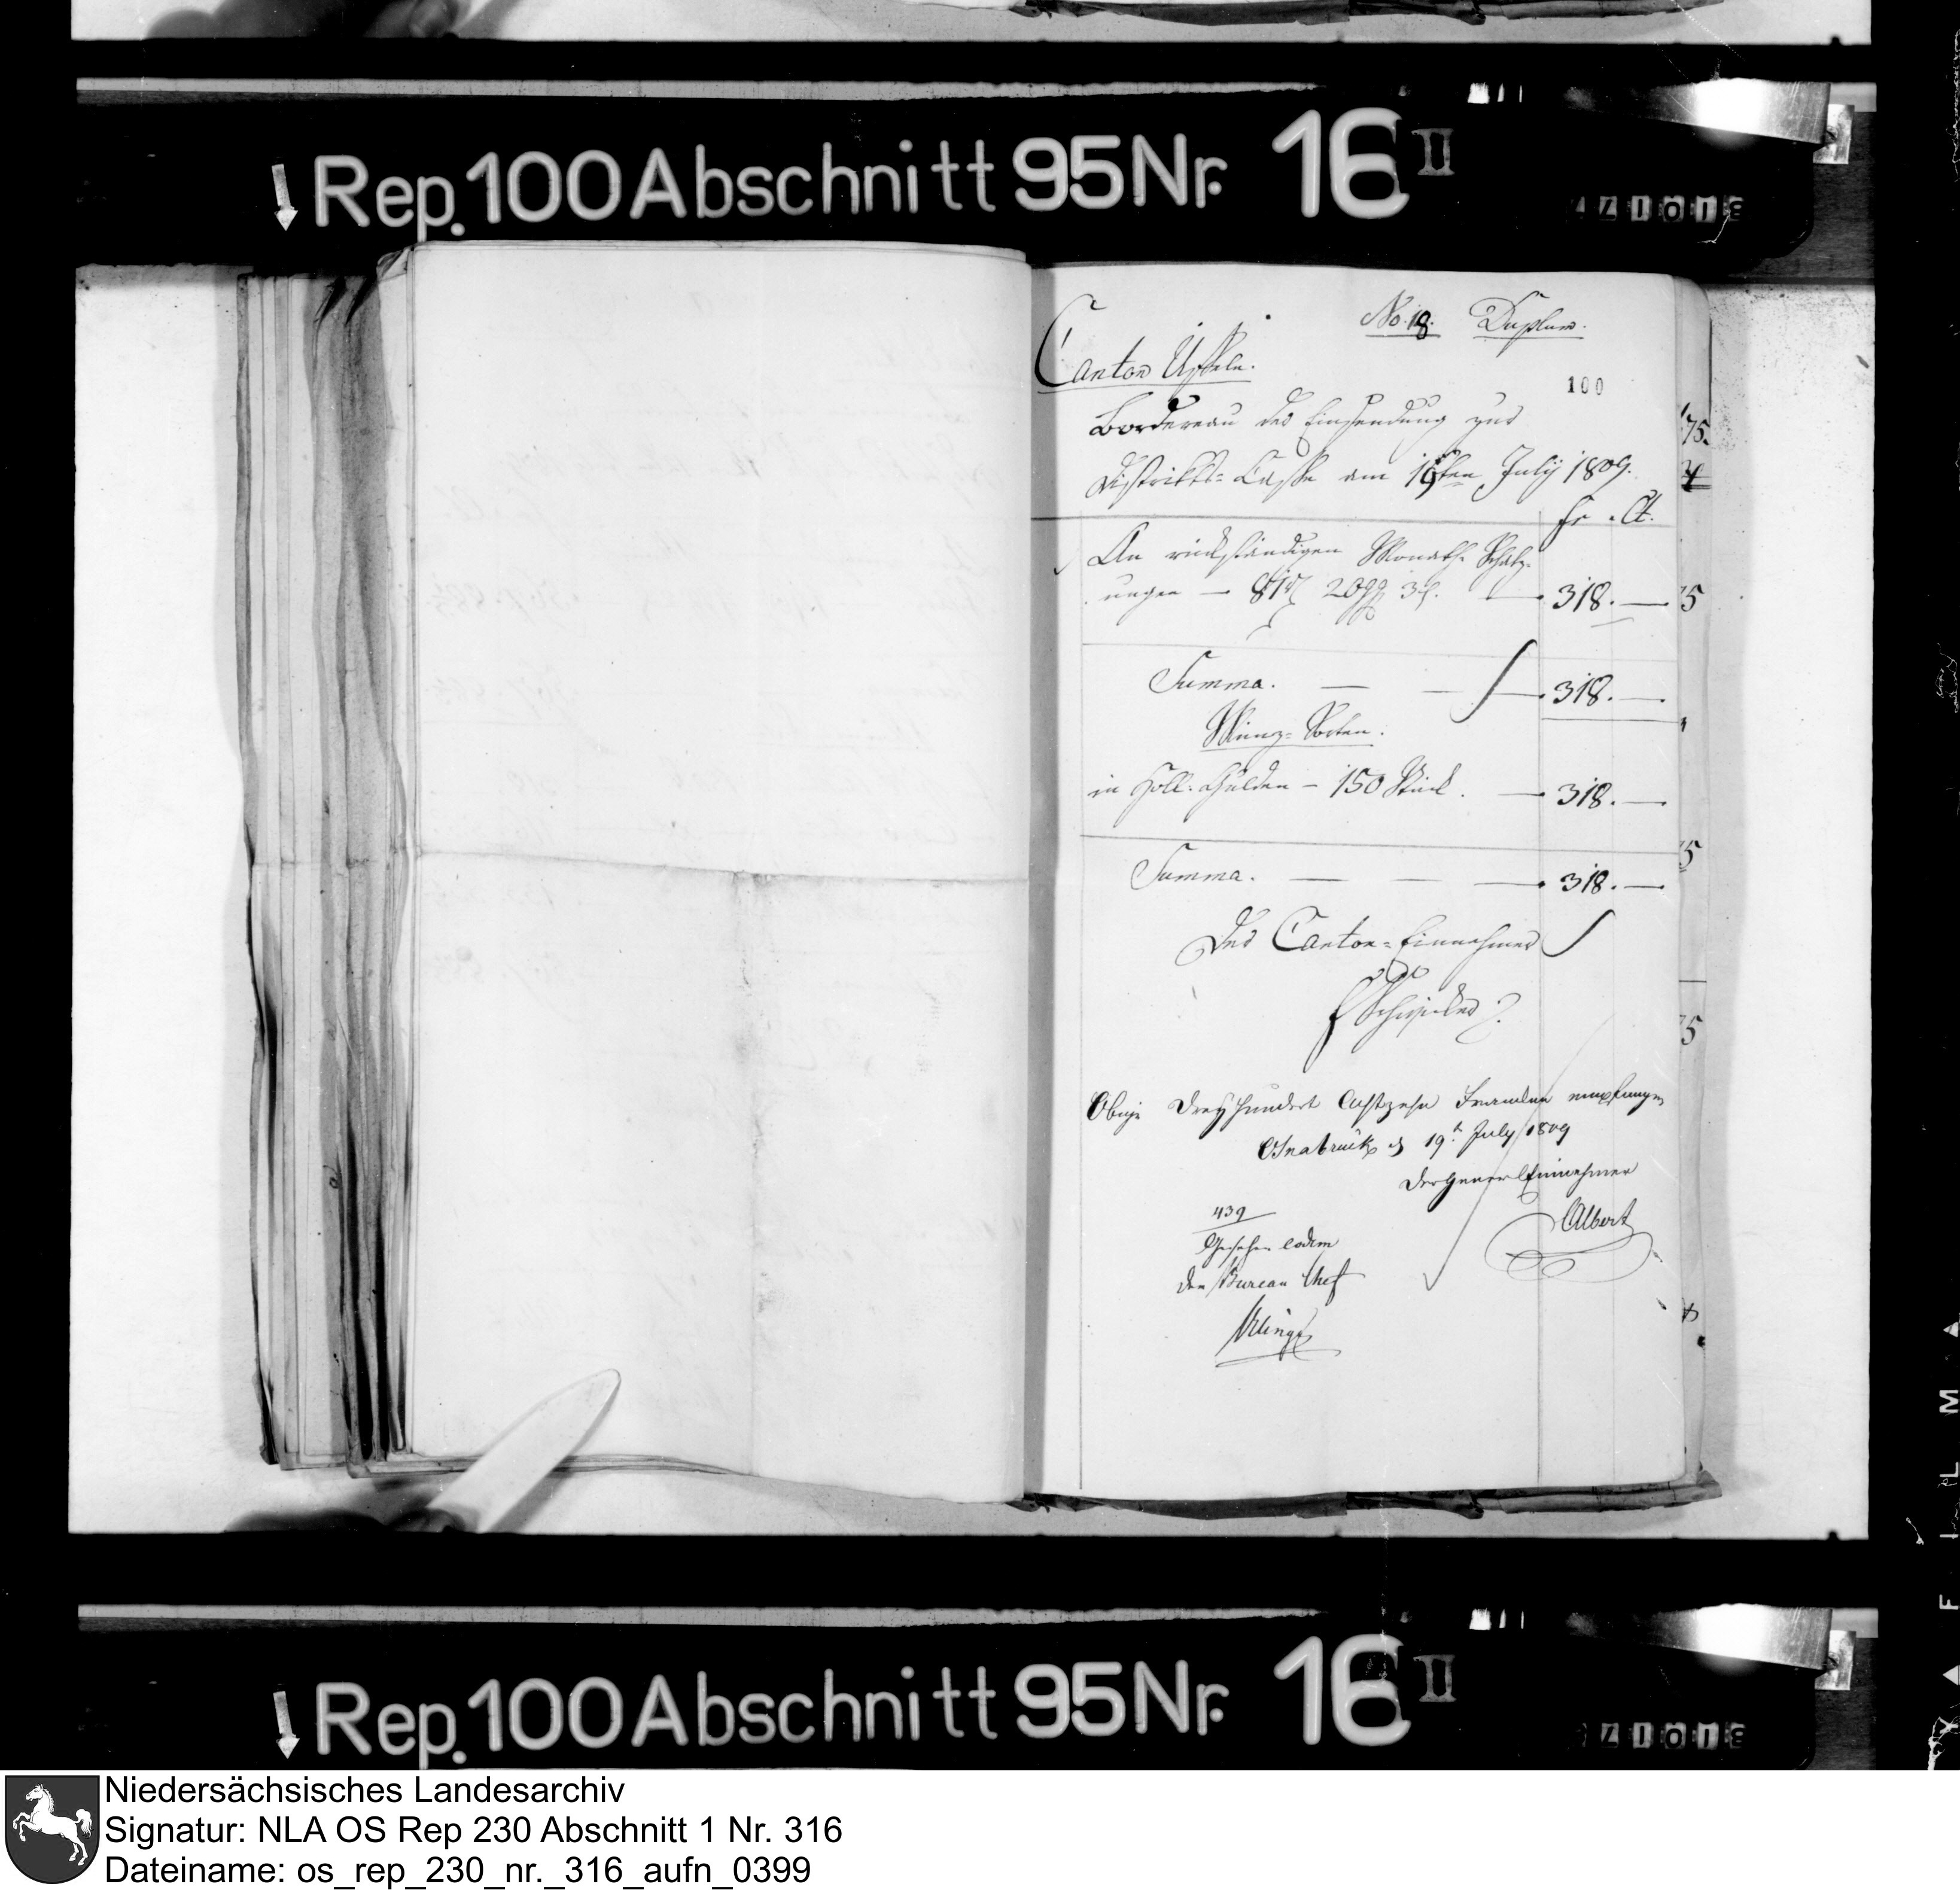 Rep. 100 Abschnitt 95 Nr. 16 II
No. 18. Duplum.
Canton Uffeln.
100
Bordereau der Einsendung zur
Distrikts-Casse am 19ten July 1809.
fr. Ct.
An rückständigen Monath. Schatz-
ungen — 81 rl 20 gg 3 d. — 318. —
Summa. — — 318. —
Münz-Sorten.
in Holl. Gulden — 150 Stück. — 318. —
Summa. — — — 318. —
Der Canton-Einnehmer
Obige Dreyhundert Achtzehn Franken empfangen
Osnabrück d 19t July 1809
Der General Einnehmer
Albert
439
Gesehen eodem
Der Bureau Chef
Rep. 100 Abschnitt 95 Nr. 16 II
Niedersächsisches Landesarchiv
Signatur: NLA OS Rep 230 Abschnitt 1 Nr. 316
Dateiname: os_rep_230_nr._316_aufn_0399